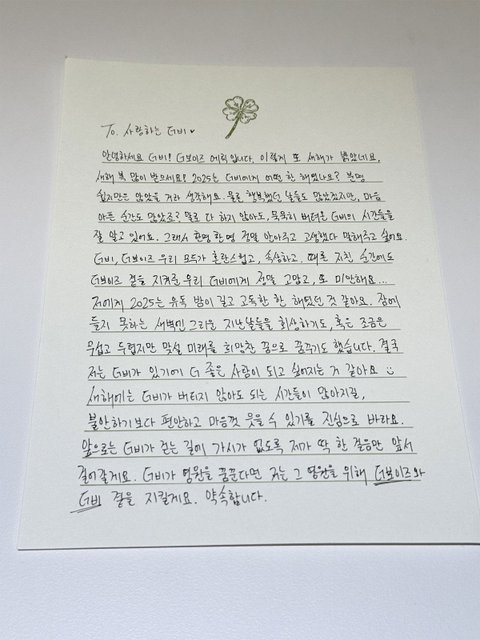 To. 사랑하는 G비 ♥
안녕하세요 G비! G보이즈 메리입니다. 이렇게 또 새해가 밝았네요,
새해 복 많이 받으세요! 2025는 G비에게 어떤 한 해였나요? 분명
쉽지만은 않았을 거라 생각해요. 물론 행복했던 날들도 많았겠지만, 마음
아픈 순간도 많았죠? 말로 다 하지 않아도, 묵묵히 버텨온 G비의 시간들을
잘 알고 있어요. 그래서 한명 한명 정말 안아주고 고생했다 말해주고 싶어요.
G비, G보이즈 우리 모두가 혼란스럽고, 속상하고, 때론 지친 순간에도
G보이즈 곁을 지켜준 우리 G비에게 정말 고맙고, 또 미안해요...
저에게 2025는 유독 밤이 길고 고독한 한 해였던 것 같아요. 잠에
들지 못하는 새벽엔 그리운 지난날들을 회상하기도, 혹은 조금은
무섭고 두렵지만 막상 미래를 희망찬 꿈으로 꿈꾸기도 했습니다. 결국
저는 G비가 있기에 더 좋은 사람이 되고 싶어지는 거 같아요 ☺
새해에는 G비가 버티지 않아도 되는 시간들이 많아지길,
불안하기보다 편안하고 마음껏 웃을 수 있기를 진심으로 바라요.
앞으로는 G비가 걷는 길에 가시가 없도록 제가 딱 한 걸음만 앞서
걸어갈게요. G비가 영원을 꿈꾼다면 저는 그 영원을 위해 G보이즈와
G비 곁을 지킬게요. 약속합니다.